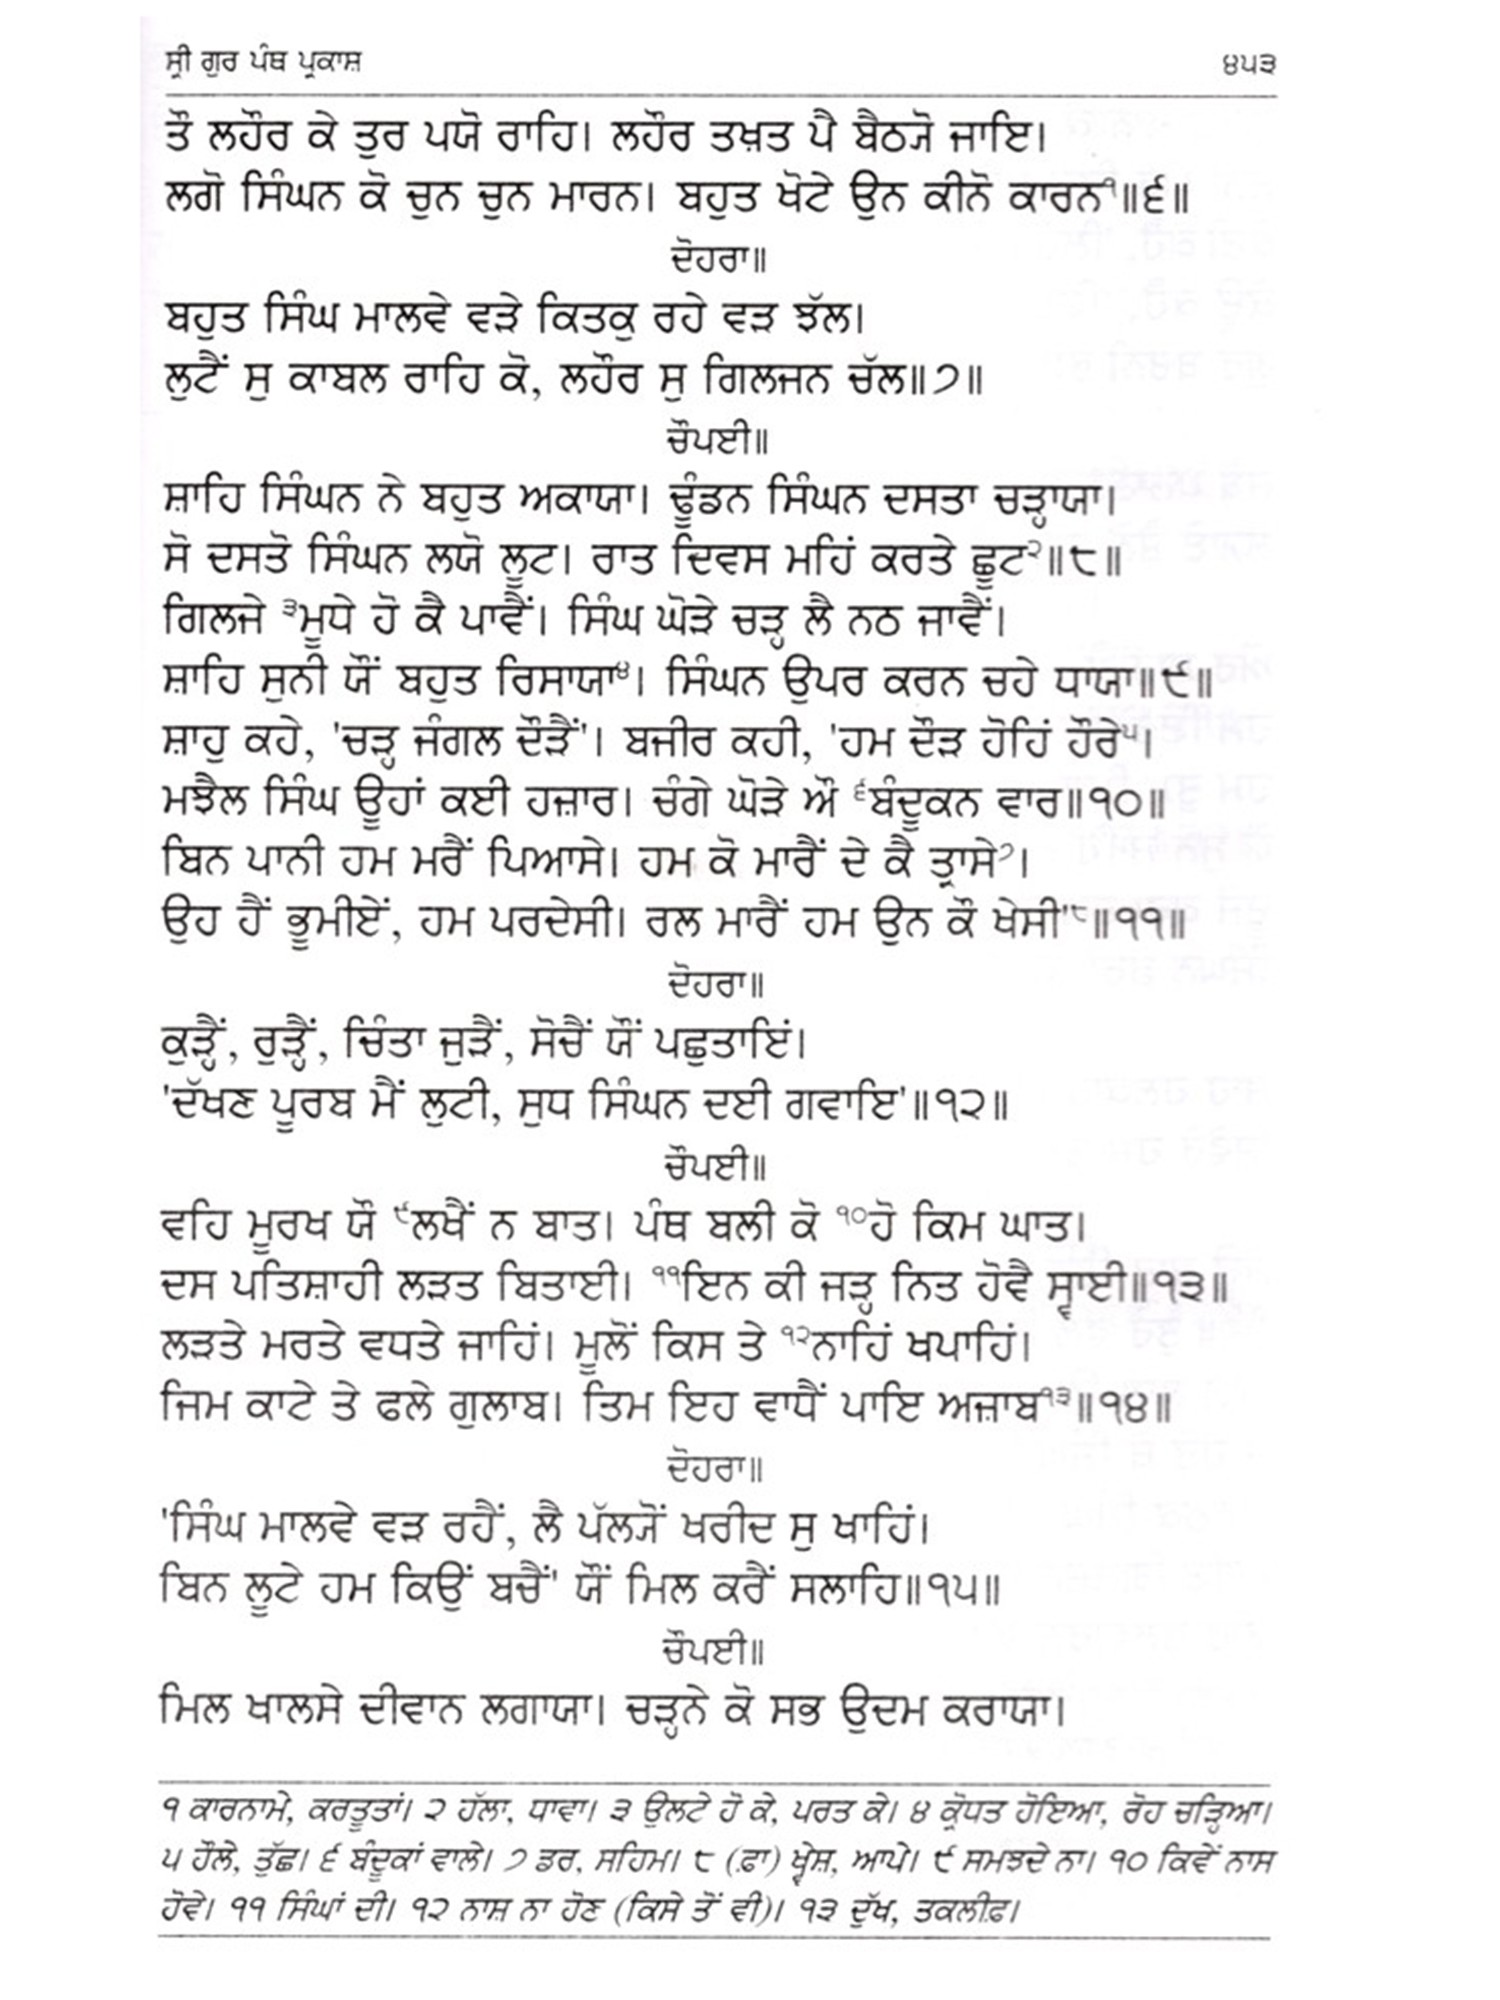 ਸ੍ਰੀ ਗੁਰ ਪੰਥ ਪ੍ਰਕਾਸ਼ ੪੫੩
ਤੌ ਲਹੌਰ ਕੇ ਤੁਰ ਪਯੋ ਰਾਹਿ। ਲਹੌਰ ਤਖ਼ਤ ਪੈ ਬੈਠ੍ਯੋ ਜਾਇ।
ਲਗੋ ਸਿੰਘਨ ਕੋ ਚੁਨ ਚੁਨ ਮਾਰਨ। ਬਹੁਤ ਖੋਟੇ ਉਨ ਕੀਨੋ ਕਾਰਨ੧॥੬॥
ਦੋਹਰਾ॥
ਬਹੁਤ ਸਿੰਘ ਮਾਲਵੇ ਵੜੇ ਕਿਤਕੁ ਰਹੇ ਵੜ ਝੱਲ।
ਲੁਟੈਂ ਸੁ ਕਾਬਲ ਰਾਹਿ ਕੋ, ਲਹੌਰ ਸੁ ਗਿਲਜਨ ਚੱਲ॥੭॥
ਚੌਪਈ॥
ਸ਼ਾਹਿ ਸਿੰਘਨ ਨੇ ਬਹੁਤ ਅਕਾਯਾ। ਢੂੰਡਨ ਸਿੰਘਨ ਦਸਤਾ ਚੜ੍ਹਾਯਾ।
ਸੋ ਦਸਤੋ ਸਿੰਘਨ ਲਯੋ ਲੂਟ। ਰਾਤ ਦਿਵਸ ਮਹਿਂ ਕਰਤੇ ਛੂਟ੨॥੮॥
ਗਿਲਜੇ ੩ਮੂਧੇ ਹੋ ਕੈ ਪਾਵੈਂ। ਸਿੰਘ ਘੋੜੇ ਚੜ੍ਹ ਲੈ ਨਠ ਜਾਵੈਂ।
ਸ਼ਾਹਿ ਸੁਨੀ ਯੌਂ ਬਹੁਤ ਰਿਸਾਯਾ੪। ਸਿੰਘਨ ਉਪਰ ਕਰਨ ਚਹੇ ਧਾਯਾ॥੯॥
ਸ਼ਾਹੁ ਕਹੇ, 'ਚੜ੍ਹ ਜੰਗਲ ਦੌੜੈਂ'। ਬਜੀਰ ਕਹੀ, 'ਹਮ ਦੌੜ ਹੋਹਿਂ ਹੌਰੇ੫।
ਮਝੈਲ ਸਿੰਘ ਊਹਾਂ ਕਈ ਹਜ਼ਾਰ। ਚੰਗੇ ਘੋੜੇ ਔ ੬ਬੰਦੂਕਨ ਵਾਰ॥੧੦॥
ਬਿਨ ਪਾਨੀ ਹਮ ਮਰੈਂ ਪਿਆਸੇ। ਹਮ ਕੋ ਮਾਰੈਂ ਦੇ ਕੈ ਤ੍ਰਾਸੇ੭।
ਉਹ ਹੈਂ ਭੂਮੀਏਂ, ਹਮ ਪਰਦੇਸੀ। ਰਲ ਮਾਰੈਂ ਹਮ ਉਨ ਕੌ ਖੇਸੀ'੮॥੧੧॥
ਦੋਹਰਾ॥
ਕੁੜ੍ਹੈਂ, ਰੁੜ੍ਹੈਂ, ਚਿੰਤਾ ਜੁੜੈਂ, ਸੋਚੈਂ ਯੌਂ ਪਛੁਤਾਇਂ।
'ਦੱਖਣ ਪੂਰਬ ਮੈਂ ਲੁਟੀ, ਸੁਧ ਸਿੰਘਨ ਦਈ ਗਵਾਇ'॥੧੨॥
ਚੌਪਈ॥
ਵਹਿ ਮੂਰਖ ਯੌ ੯ਲਖੈਂ ਨ ਬਾਤ। ਪੰਥ ਬਲੀ ਕੋ ੧੦ਹੋ ਕਿਮ ਘਾਤ।
ਦਸ ਪਤਿਸ਼ਾਹੀ ਲੜਤ ਬਿਤਾਈ। ੧੧ਇਨ ਕੀ ਜੜ੍ਹ ਨਿਤ ਹੋਵੈ ਸ੍ਵਾਈ॥੧੩॥
ਲੜਤੇ ਮਰਤੇ ਵਧਤੇ ਜਾਹਿਂ। ਮੂਲੋਂ ਕਿਸ ਤੇ ੧੨ਨਾਹਿਂ ਖਪਾਹਿਂ।
ਜਿਮ ਕਾਟੇ ਤੇ ਫਲੇ ਗੁਲਾਬ। ਤਿਮ ਇਹ ਵਾਧੈਂ ਪਾਇ ਅਜ਼ਾਬ੧੩॥੧੪॥
ਦੋਹਰਾ॥
'ਸਿੰਘ ਮਾਲਵੇ ਵੜ ਰਹੈਂ, ਲੈ ਪੱਲ੍ਯੋਂ ਖਰੀਦ ਸੁ ਖਾਹਿਂ।
ਬਿਨ ਲੂਟੇ ਹਮ ਕਿਉਂ ਬਚੈਂ' ਯੌਂ ਮਿਲ ਕਰੈਂ ਸਲਾਹਿ॥੧੫॥
ਚੌਪਈ॥
ਮਿਲ ਖਾਲਸੇ ਦੀਵਾਨ ਲਗਾਯਾ। ਚੜ੍ਹਨੇ ਕੋ ਸਭ ਉਦਮ ਕਰਾਯਾ।
੧ ਕਾਰਨਾਮੇ, ਕਰਤੂਤਾਂ। ੨ ਹੱਲਾ, ਧਾਵਾ। ੩ ਉਲਟੇ ਹੋ ਕੇ, ਪਰਤ ਕੇ। ੪ ਕ੍ਰੋਧਤ ਹੋਇਆ, ਰੋਹ ਚੜ੍ਹਿਆ।
੫ ਹੌਲੇ, ਤੁੱਛ। ੬ ਬੰਦੂਕਾਂ ਵਾਲੇ। ੭ ਡਰ, ਸਹਿਮ। ੮ (ਫ਼ਾ) ਖ਼੍ਵੇਸ਼, ਆਪੇ। ੯ ਸਮਝਦੇ ਨਾ। ੧੦ ਕਿਵੇਂ ਨਾਸ
ਹੋਵੇ। ੧੧ ਸਿੰਘਾਂ ਦੀ। ੧੨ ਨਾਸ਼ ਨਾ ਹੋਣ (ਕਿਸੇ ਤੋਂ ਵੀ)। ੧੩ ਦੁੱਖ, ਤਕਲੀਫ਼।